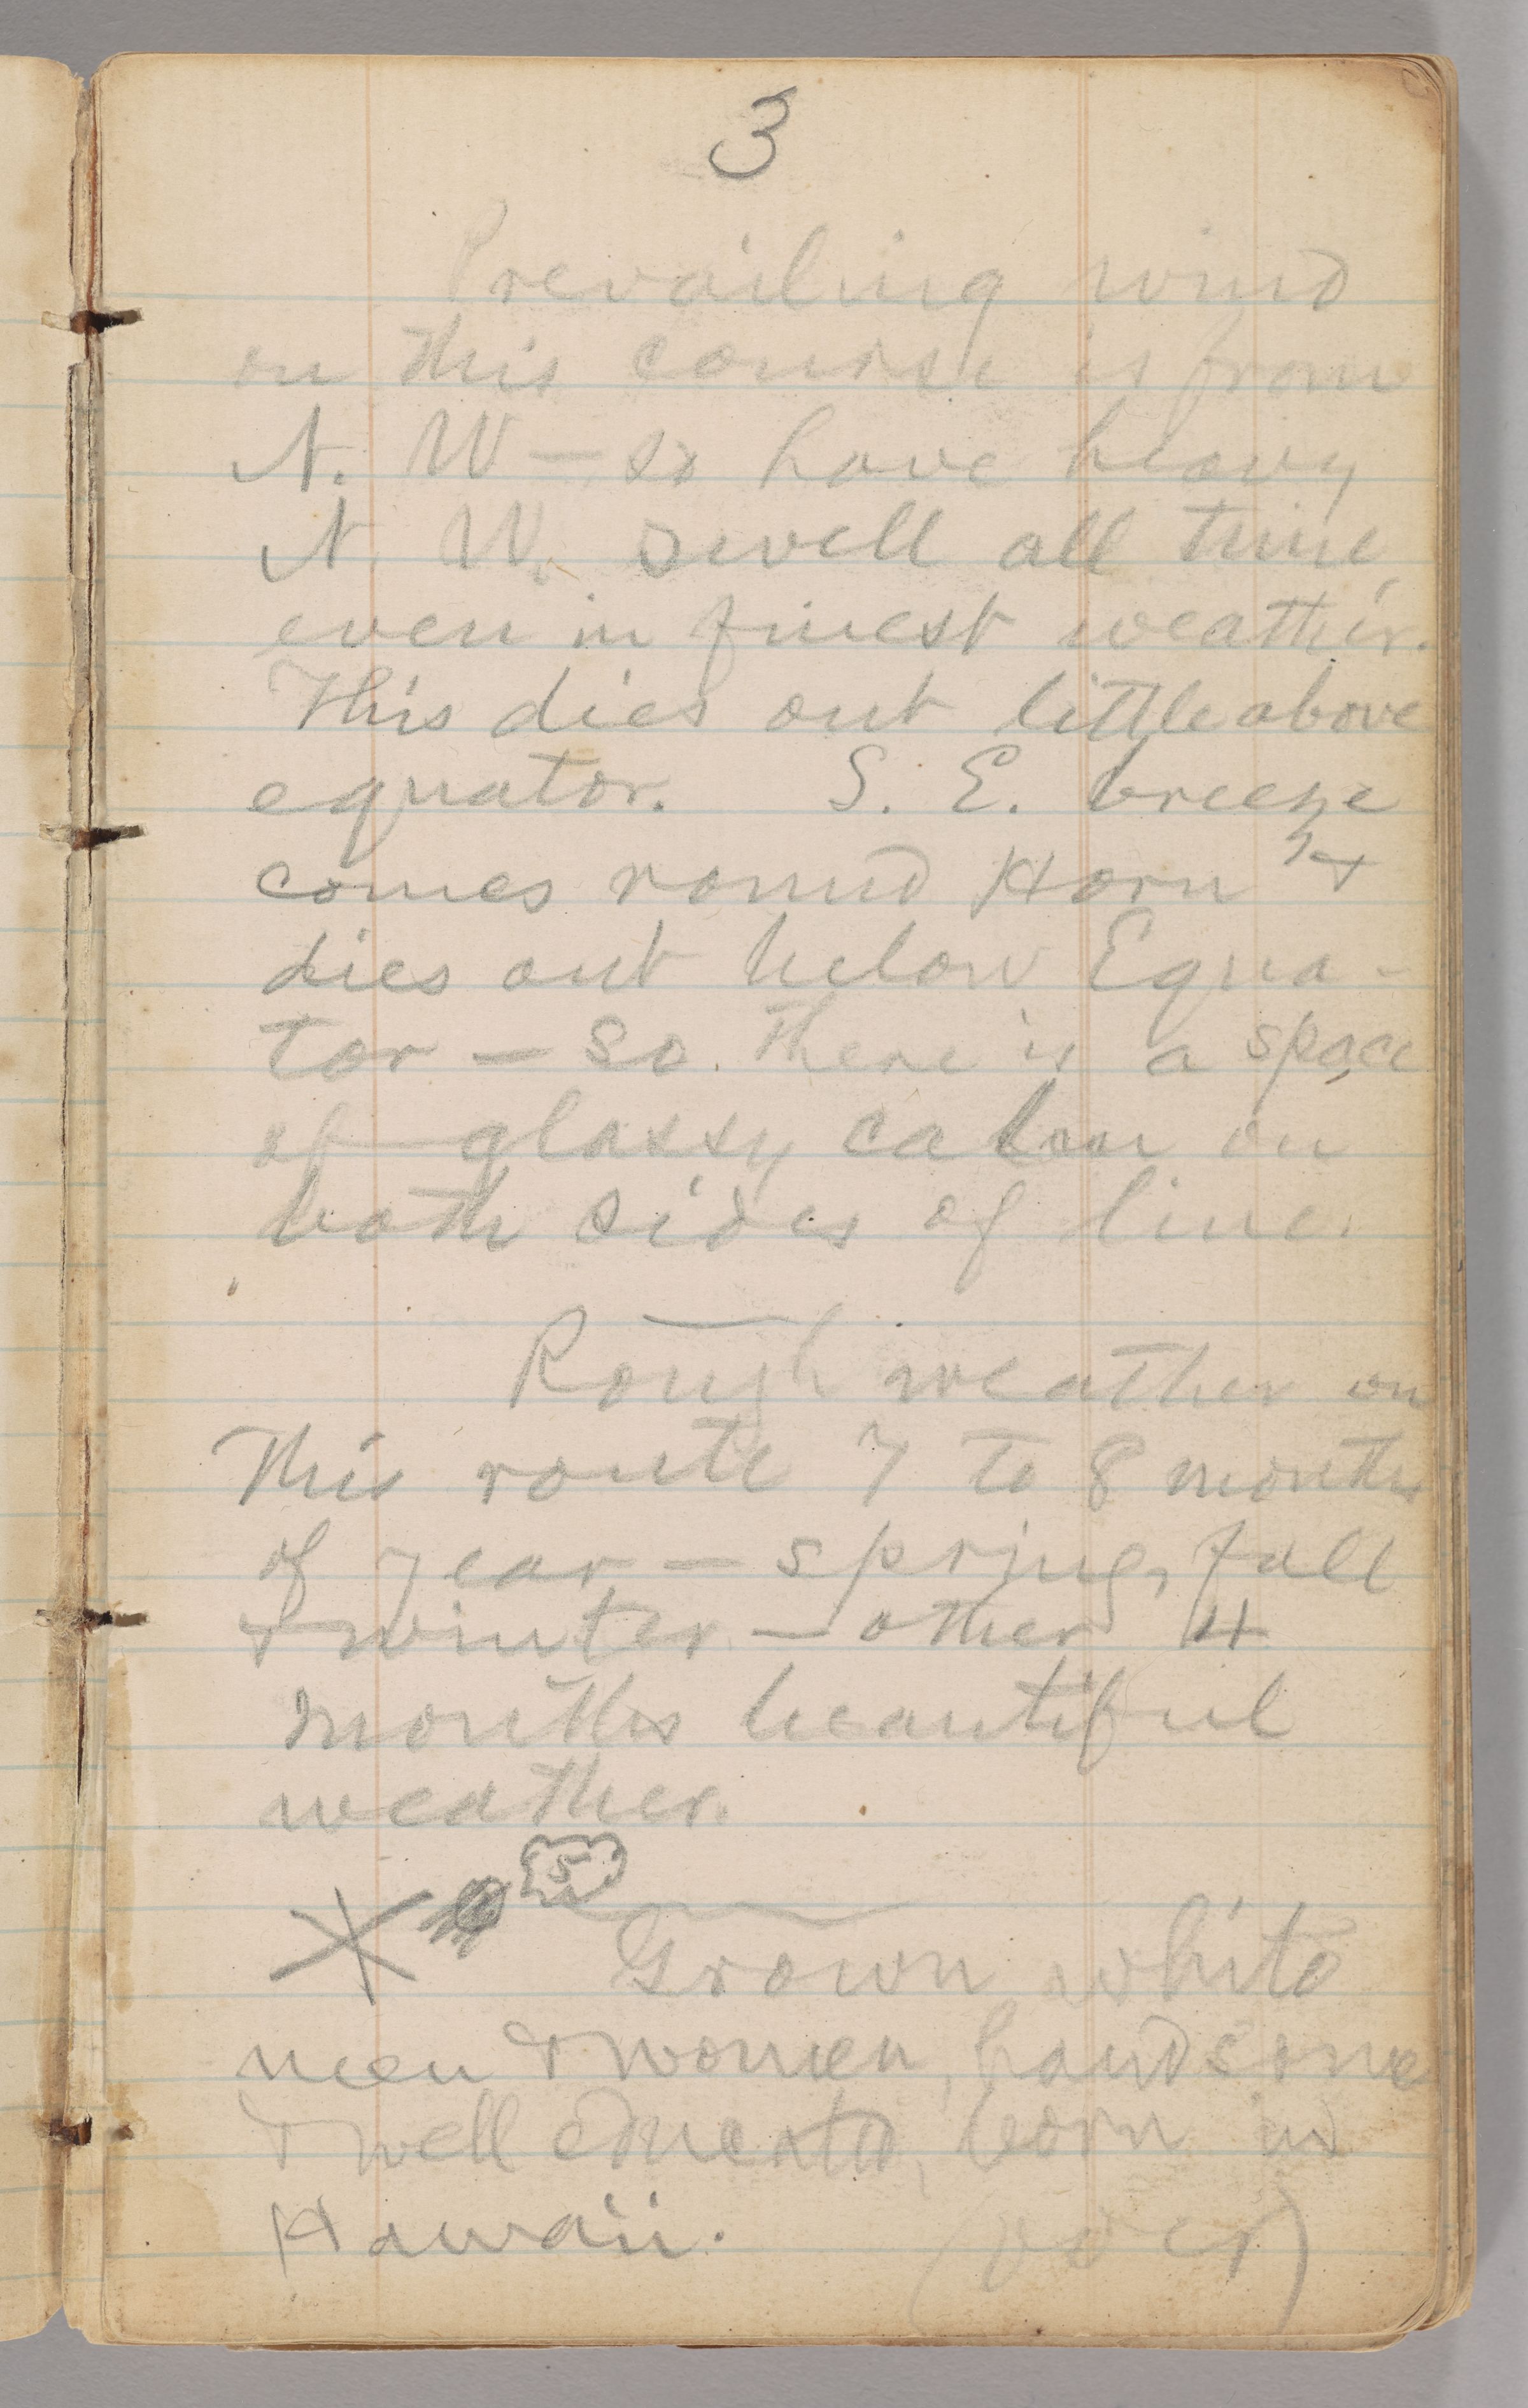 3
Prevailing wind
on this course is from
N. W — so have heavy
N. W. swell all time,
even in finest weather.
This dies out little above
equator. S. E. breeze
comes round Horn, &
dies out below Equa-
tor — so there is a space
of glassy calm on
both sides of line.
Rough weather on
this route 7 to 8 months
of year — spring, fall
& winter — other 4
months beautiful
weather.
5
Grown white
men & women, handsome
& well educated, born in
Hawaii. (over)